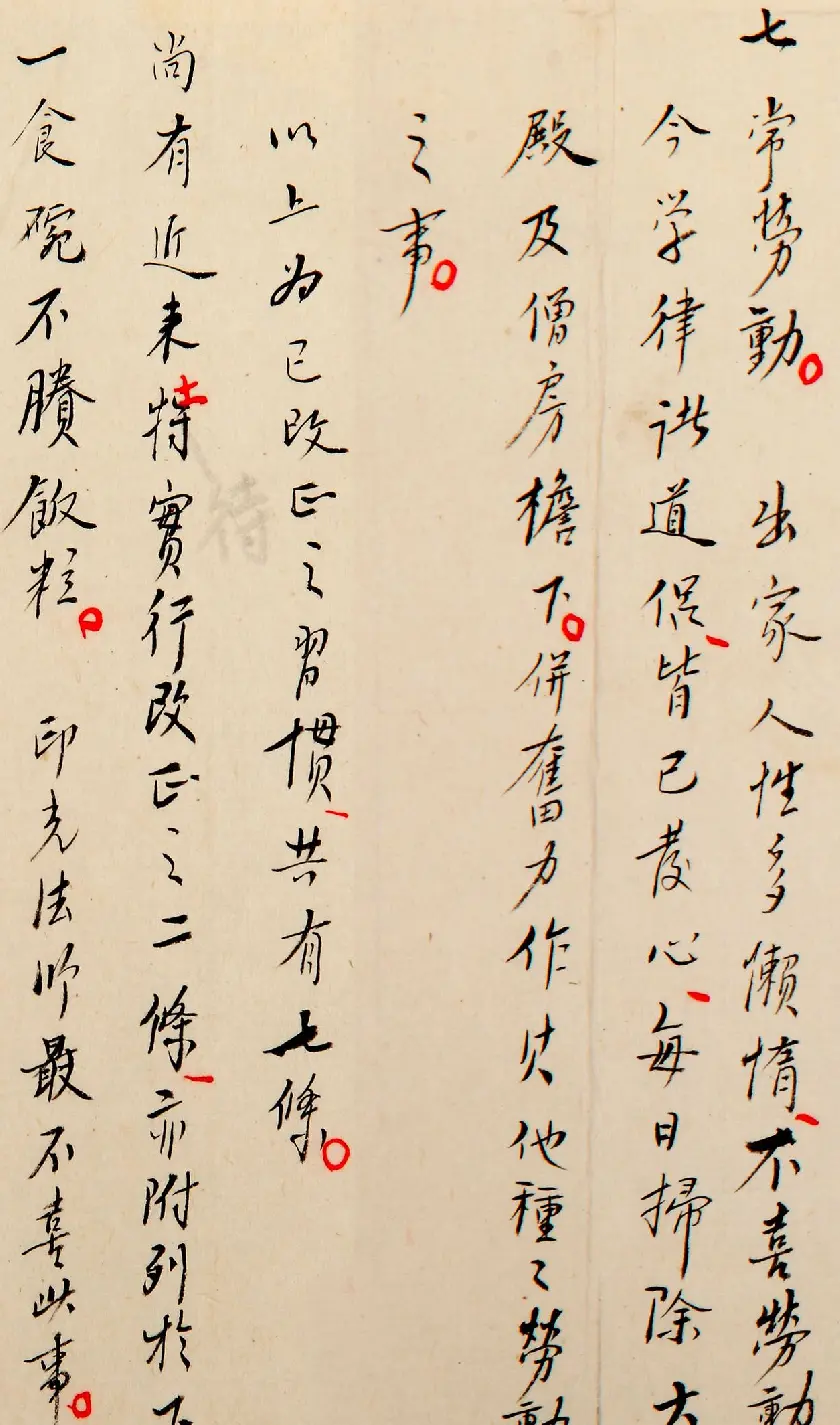 七 常勞動。 出家人性多懶惰、不喜勞動
今学律諸道侶、皆已發心、每日掃除大
殿及僧房檐下。併奮力作其他種々勞動
之事。
以上為已改正之習慣、共有七條。
尚有近来特實行改正之二條、亦附列於下
一食碗不賸飯粒。 印光法師最不喜此事。
待